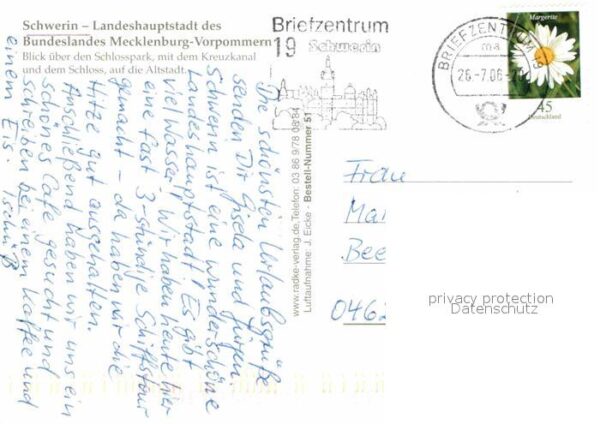 Schwerin – Landeshauptstadt des
Bundeslandes Mecklenburg-Vorpommern
Blick über den Schlosspark, mit dem Kreuzkanal
und dem Schloss, auf die Altstadt
Die schönsten Urlaubsgrüße
senden Dir Gisela und Jürgen
Schwerin ist eine wunderschöne
Landeshauptstadt! Es gibt
viel Wasser. Wir haben heute hier
eine fast 3-stündige Schiffstour
gemacht – da haben wir die
Hitze gut ausgehalten.
Anschließend haben wir uns ein
schönes Café gesucht und
schreiben bei einem Kaffee und
einem Eis. Tschüß
www.radke-verlag.de, Telefon: 03 86 9/78 09 84
Luftaufnahme J. Eicke - Bestell-Nummer 51
Briefzentrum
19 Schwerin
BRIEFZENTRUM 19
ma
26.-7.06
Margerite
45
Deutschland
Frau
Mar
Bee
0462
privacy protection
Datenschutz